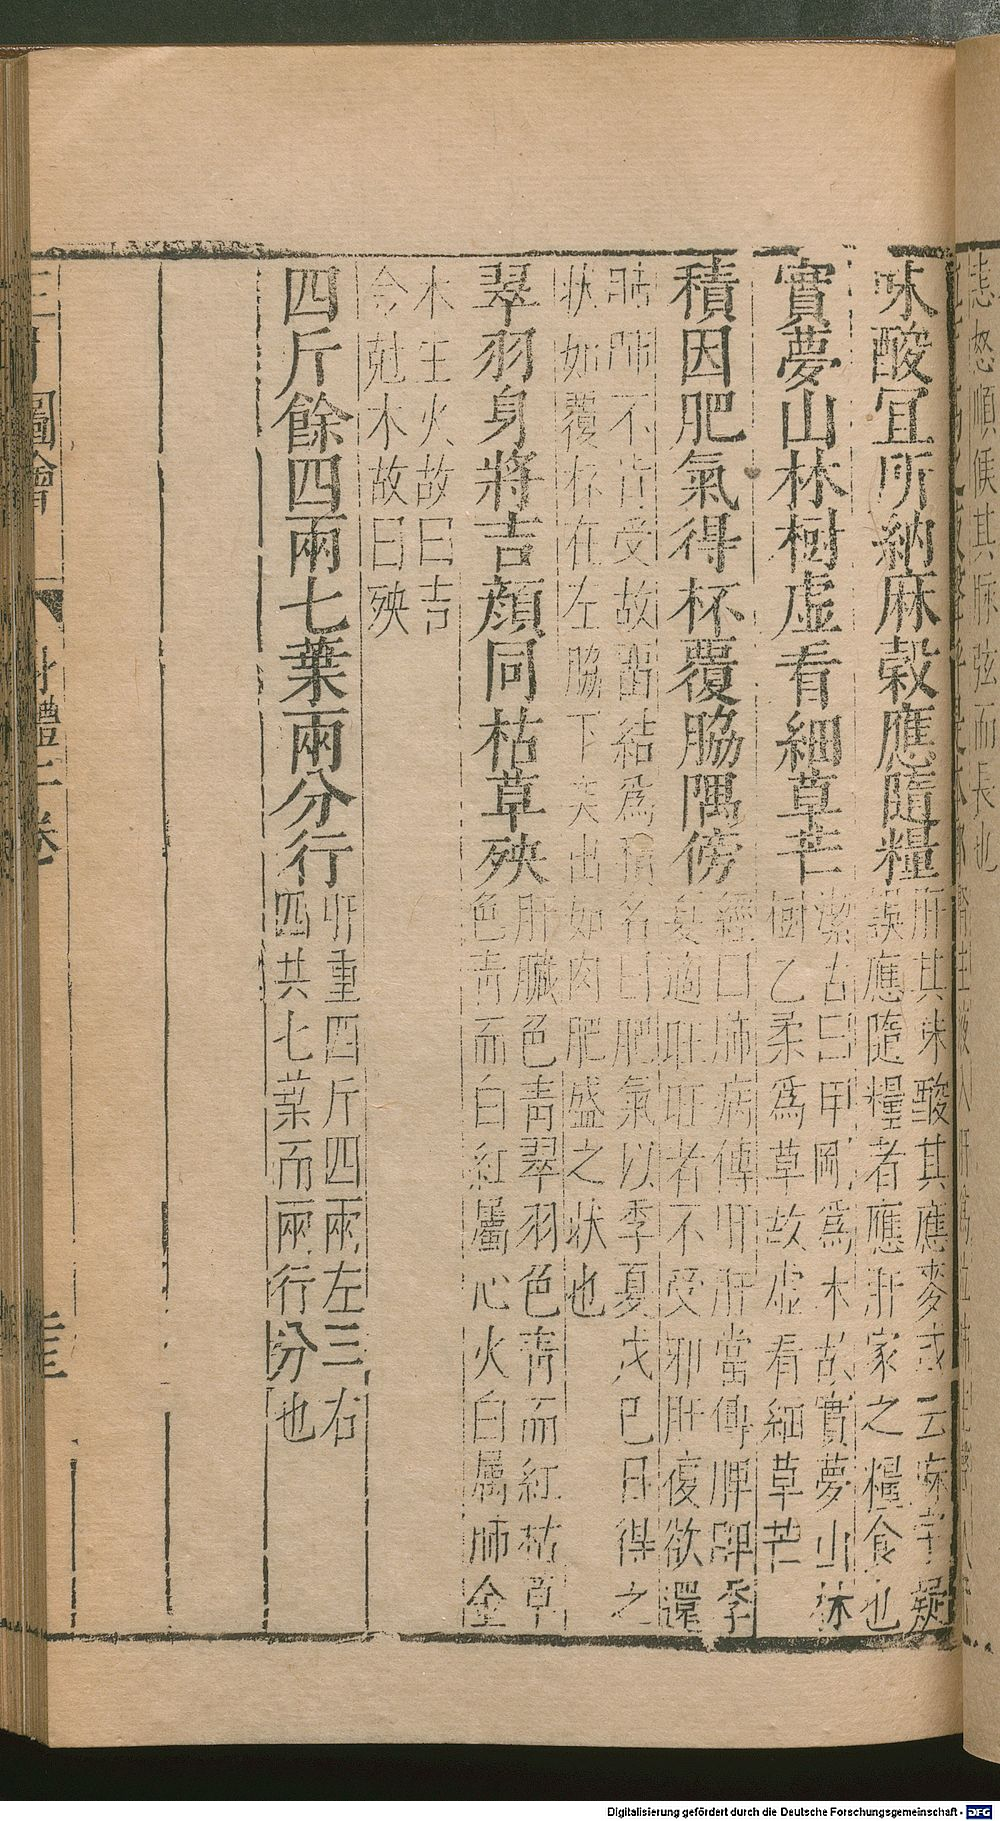 味酸宜所納麻穀應隨糧肝其味酸其應麥或云麻字疑
誤應隨糧者應肝家之糧食也
實夢山林樹虛看細草芒潔古曰甲剛爲木故實夢山林
樹乙柔爲草故虛看細草芒
積因肥氣得杯覆脇隅傍經曰肺病傳肝肝當傳脾脾季
夏適旺旺者不受邪肝復欲還
肺肺不肯受故留結爲積名曰肥氣以季夏戊巳日得之
狀如覆杯在左脇下突出如肉肥盛之狀也
翠羽身將吉顔同枯草殃肝臟色靑翠羽色靑而紅枯草
色靑而白紅屬心火白属肺金
木生火故曰吉
今尅木故曰殃
四斤餘四兩七葉兩分行肝重四斤四兩左三右
四共七葉而兩行分也
圖會 身體二卷
悲怒順候其脉弦而長也
Digitalisierung gefördert durch die Deutsche Forschungsgemeinschaft - DFG